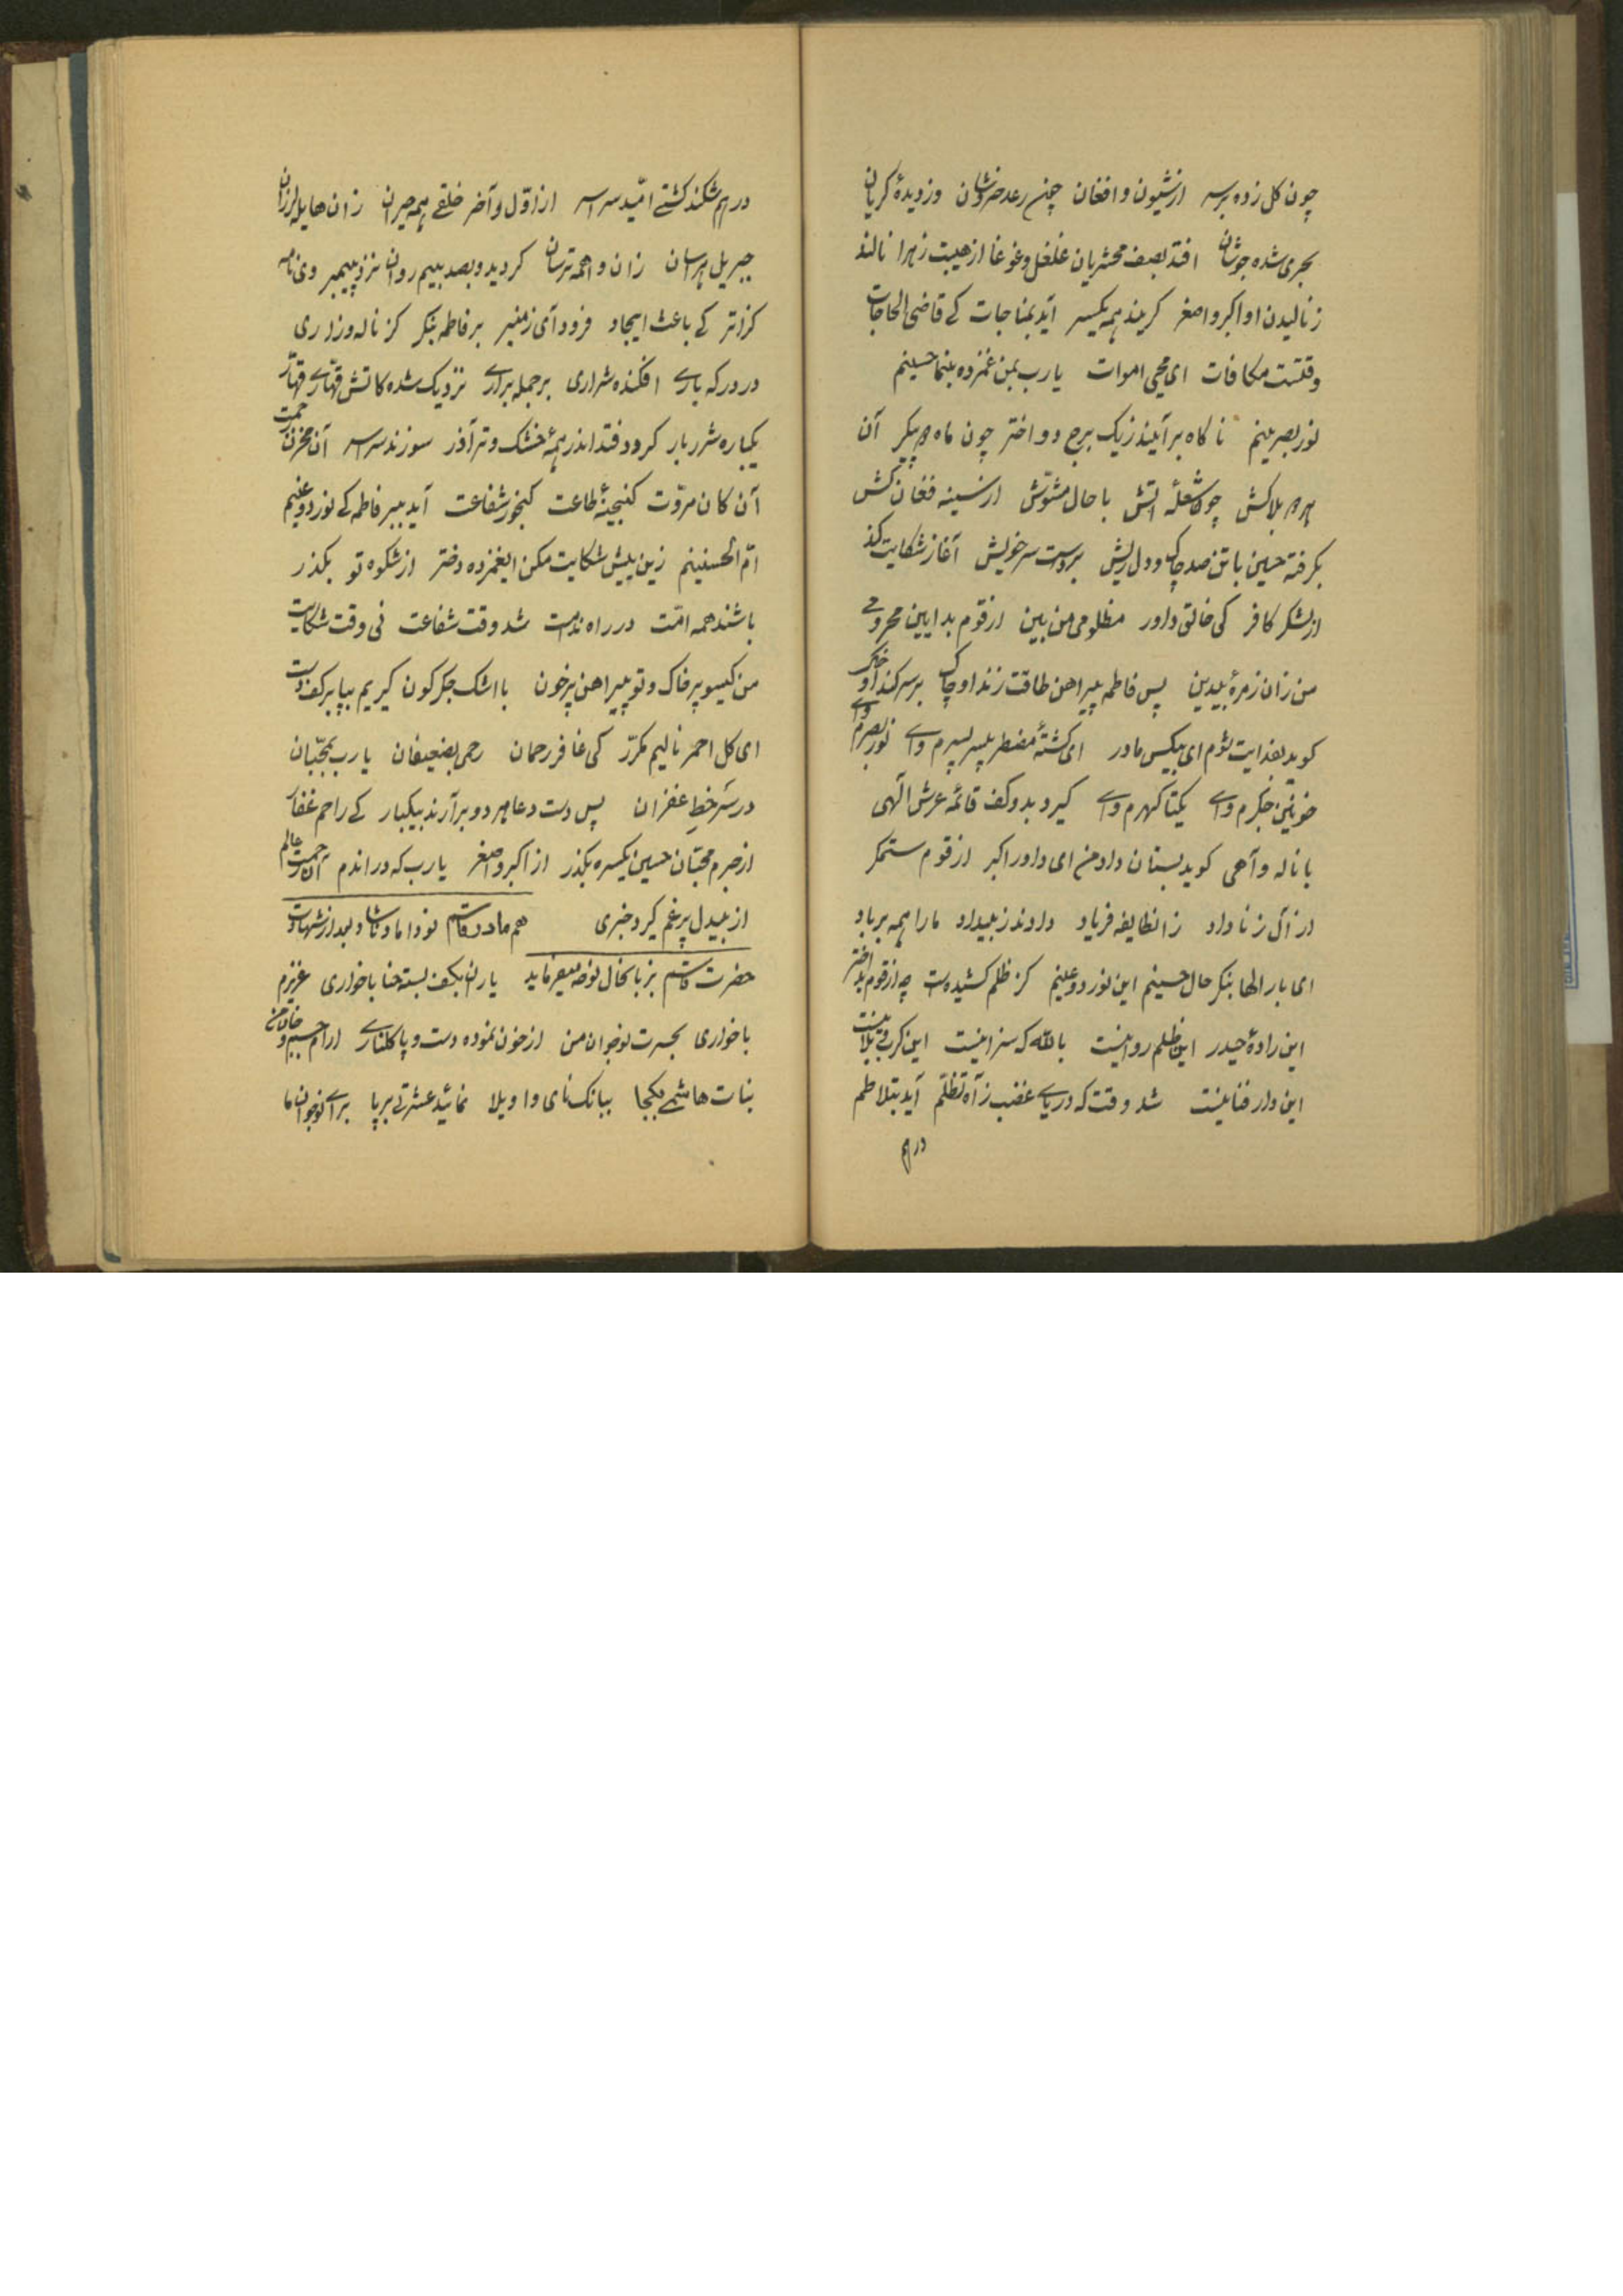 چون کل زده بر سر از شیون و افغان چون رعد خروشان وز دیدهٔ کریان
بحری شده جوشان افتد بصف محشریان غلغل و غوغا از هیبت زهرا نالند
ز نالیدن او اکبر و اصغر کریند همه یکسر آید بمناجات کے قاضی الحاجات
وقتست مکافات ای محیی اموات یا رب بمن غمزده بنما حسینم
نور بصرینم ناکاه برآیند ز یک برج دو اختر چون ماه و پیکر آن
بلاکش چون شعلهٔ اتش با حال مشوّش از سینه فغان کش
بکرفته حسین با تن صد چاک و دل ریش بر دست سر خویش آغاز شکایت کند
از لشکر کافر کی خالق داور مظلومی من بین از قوم بد ایین مجروحی
من زان زمرهٔ بیدین پس فاطمه پیراهن طاقت زند او چاک بر سر کند او خاک
کوید بفدایت شوم ای بیکس مادر ای کشتهٔ مضطر پسر پسرم واے نور بصرم واے
خونین جکرم واے یکتا کهرم واے کیرد بدو کف قائمه عرش الهی
با ناله و آهی کوید بستان داد من ای داور اکبر از قوم ستمکر
از آل زنا داد زانطایفه فریاد دادند ز بیداد ما را همه بر باد
ای بار الها بنکر حال حسینم این نور دو عینم کز ظلم کشیدست چه از قوم بد اختر
این زادهٔ حیدر این ظلم روا نیست بالله که سزا نیست این کرب و بلا نیست
این دار فنا نیست شد وقت که دریاے غضب ز آه تظلّم آید بتلاطم
درهم
درهم شکند کشتے امّید سراسر از اوّل و آخر خلقے همه حیران زان هایله لرزان
جبریل هراسان زان واهمه ترسان کردید و بصد بیم روان نزد پیمبر وی نامه
کزاتر کے باعث ایجاد فرود آی ز منبر بر فاطمه بنکر کز ناله و زاری
در درکه بارے افکنده شراری بر جمله برارے نزدیک شده کاتش قهّارے قهّار
یکباره شرر بار کردد فتد اندر همهٔ خشک و تر آذر سوزند سراسر آن مخزن رحمت
آن کان مروّت کنجینهٔ طاعت کنجور شفاعت آید ببر فاطمه کے نور دو عینم
امّ الحسنینم زین بیش شکایت مکن ایغمزده دختر از شکوه تو بکذر
باشند همه امّت در راه ندامت شد وقت شفاعت نی وقت شکایت
من کیسو پر خاک و تو پیراهن پر خون با اشک جکر کون کیریم بپا بر کف دست
ای کل احمر نالیم مکرّر کی غافر رحمان رحمی بضعیفان یا رب بمحبّان
در سر خطِ غفران پس دست دعا هر دو برآرند بیکبار کے راحم غفار
از جرم محبّان حسین یکسره بکذر از اکبر و اصغر یا رب که در اندم آن رحمت عالم
از بیدل پر غم کیرد خبری هم مادر قاسم نوداماد ناشاد بعد از شهادت
حضرت قاسم بزبانحال نوحه میفرماید یاران بکف بسته حنا با خواری عزیزم
با خواری بحسرت نوجوان من از خون نموده دست و پا کلنارے
بنات هاشمے یکجا ببانک نای واویلا نمائید عشرتی برپا براے نوجوان ما